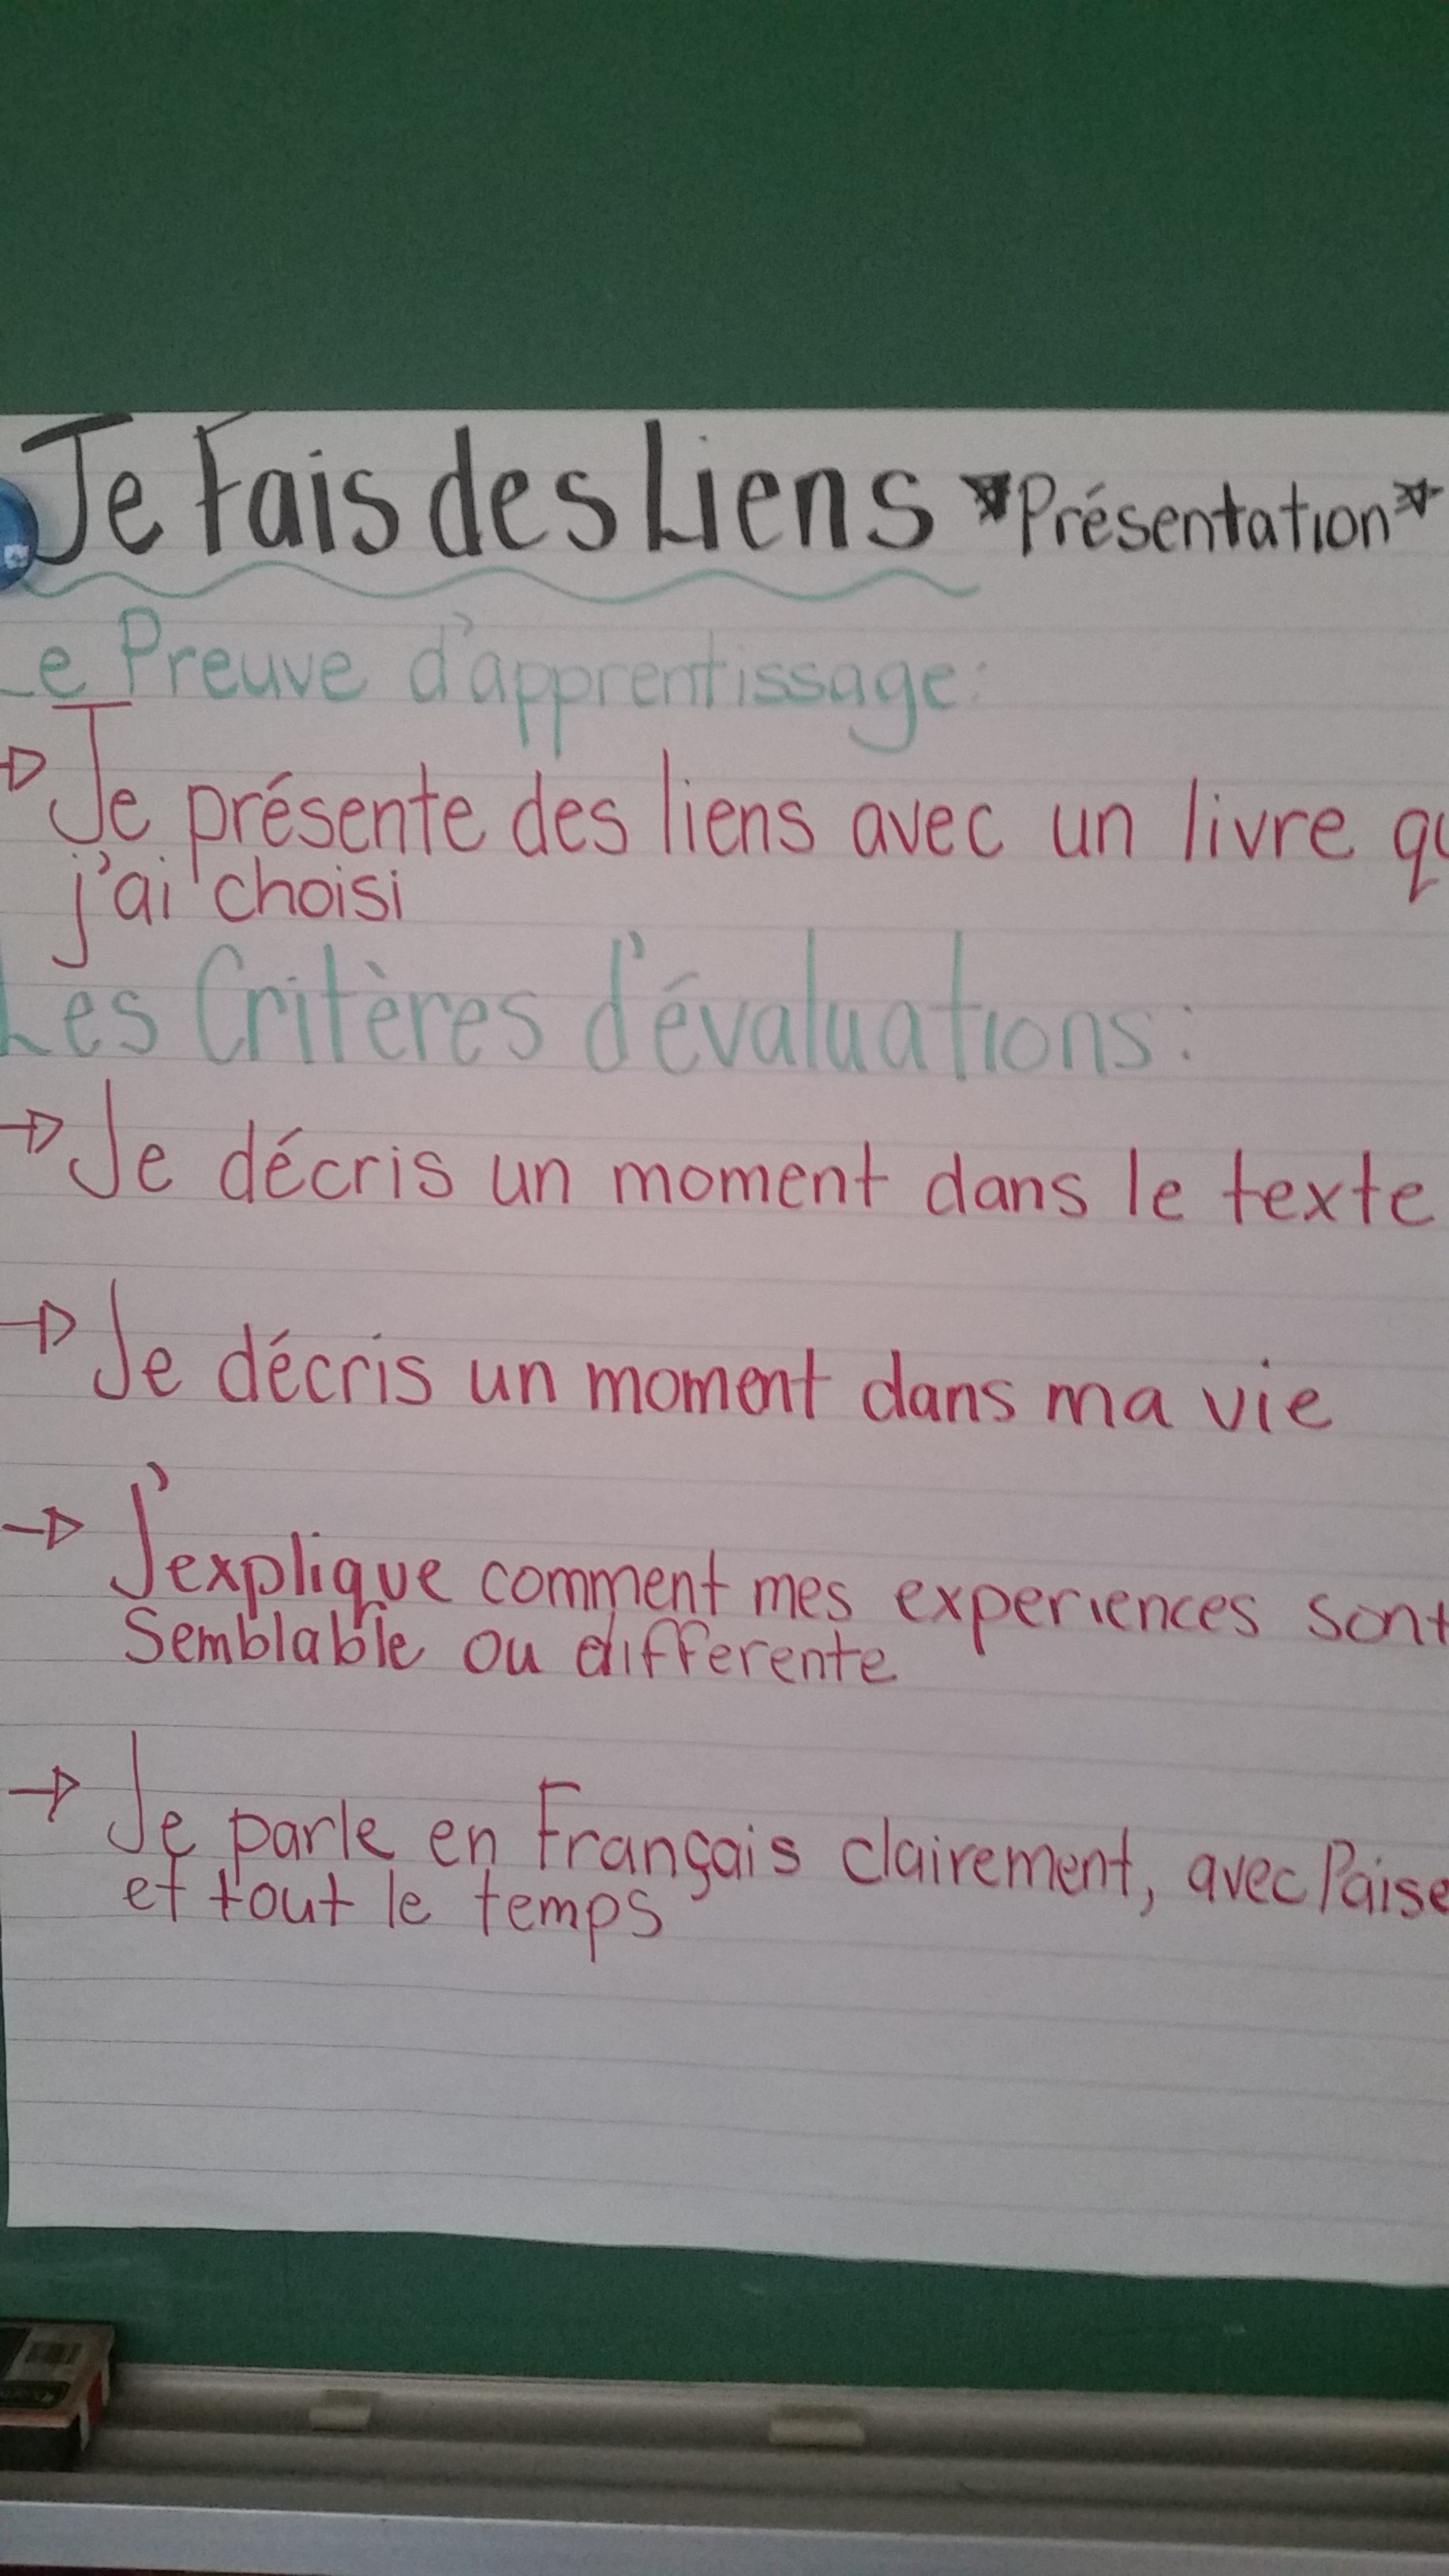 Je Fais des Liens *Présentation*
Le Preuve d'apprentissage:
→ Je présente des liens avec un livre qu
j'ai choisi
Les Critères d'évaluations:
→ Je décris un moment dans le texte
→ Je décris un moment dans ma vie
→ J'explique comment mes experiences sont
Semblable ou differente
→ Je parle en Français clairement, avec l'aise
et tout le temps